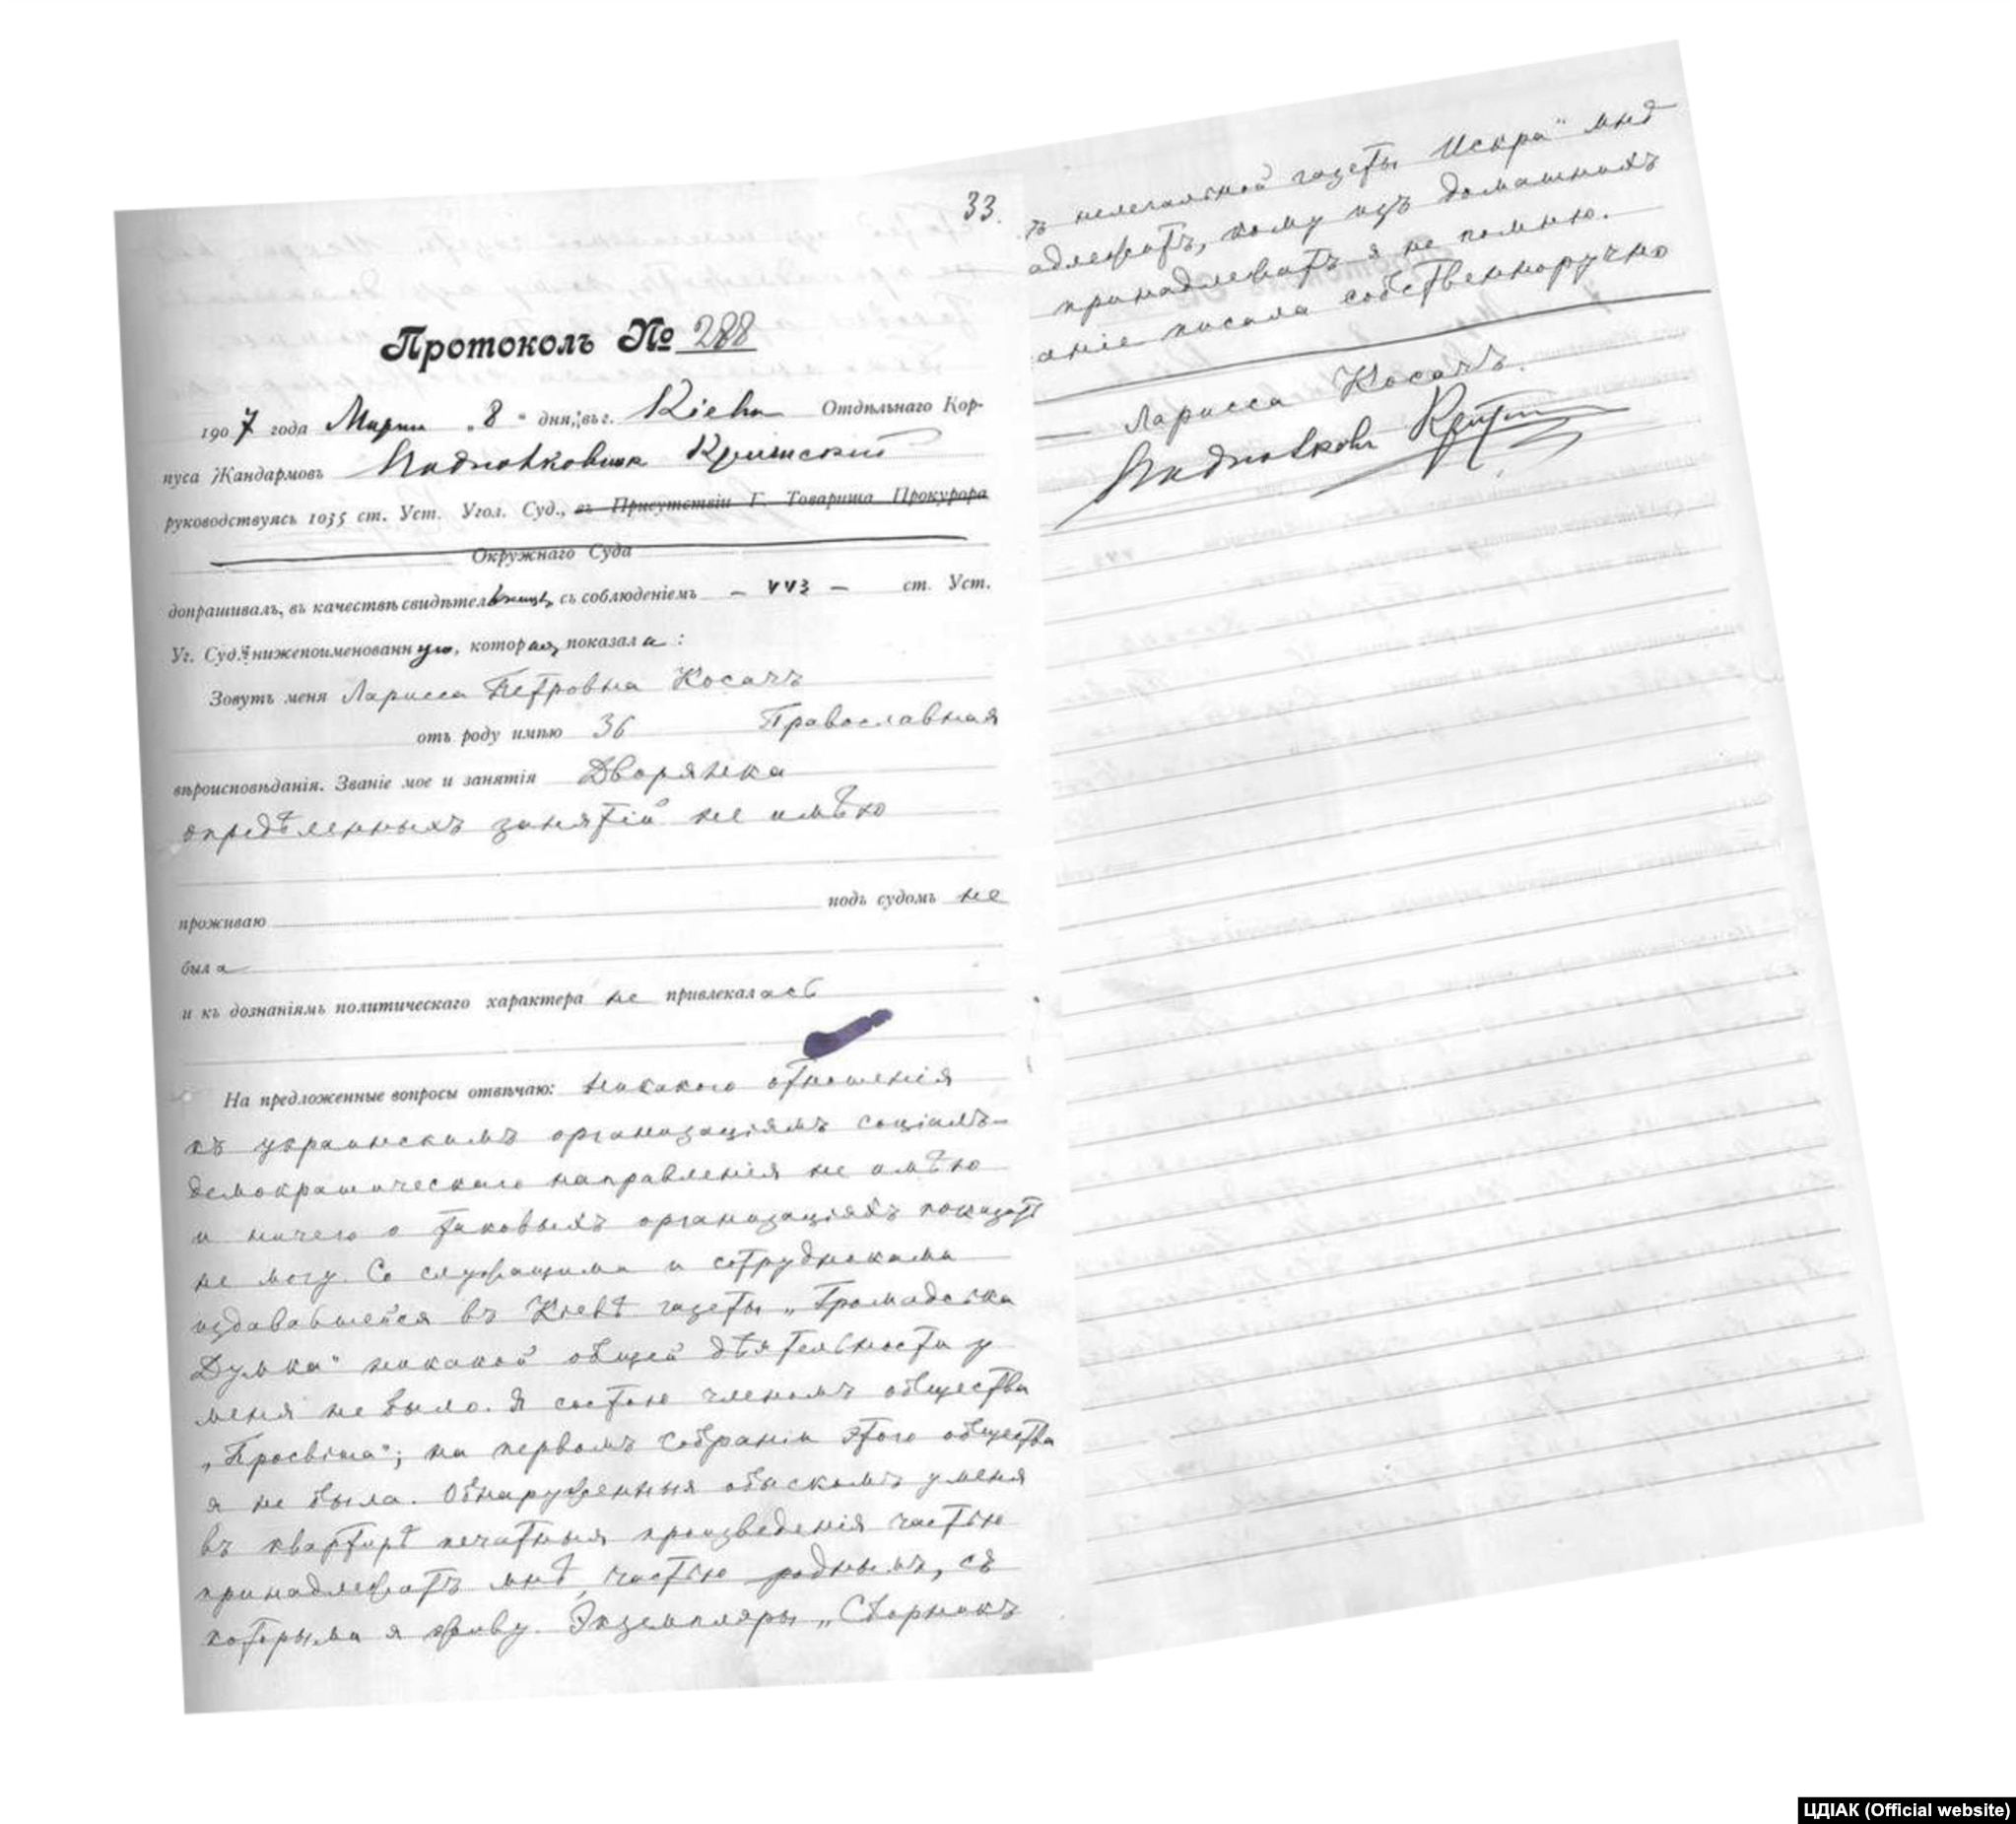 33.
Протоколъ № 288
1907 года Марта „8" дня, въ г. Кіевѣ Отдѣльнаго Кор-
пуса Жандармовъ Подполковникъ
руководствуясь 1035 ст. Уст. Угол. Суд., въ Присутствіи Г. Товарища Прокурора
Окружнаго Суда
допрашивалъ, въ качествѣ свидѣтельницы, съ соблюденіемъ — 443 — ст. Уст.
Уг. Суд. нижепоименованную, которая показала:
Зовутъ меня Ларисса Петровна Косачъ
отъ роду имѣю 36 Православная
вѣроисповѣданія. Званіе мое и занятія Дворянка
опредѣленныхъ занятій не имѣю
проживаю подъ судомъ не
была
и къ дознаніямъ политическаго характера не привлекалась
На предложенные вопросы отвѣчаю: Никакого отношенія
къ украинскимъ организаціямъ соціалъ-
демократическаго направленія не имѣю
и ничего о таковыхъ организаціяхъ показать
не могу. Со служащими и сотрудниками
издававшейся въ Кіевѣ газеты „Громадська
Думка" никакой общей дѣятельности у
меня не было. Я состою членомъ общества
„Просвіта"; на первомъ собраніи этого общества
я не была. Обнаруженныя обыскомъ у меня
въ квартирѣ печатныя произведенія частью
принадлежатъ мнѣ, частью роднымъ, съ
которыми я живу. Экземпляры „Сборникъ
нелегальной газеты Искра" мнѣ
адлежатъ, кому изъ домашнихъ
принадлежатъ я не помню.
аніе писала собственноручно
Ларисса Косачъ.
Подполковн
ЦДІАК (Official website)